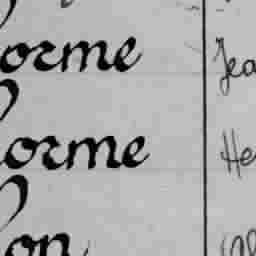 orme Jea
orme He
on